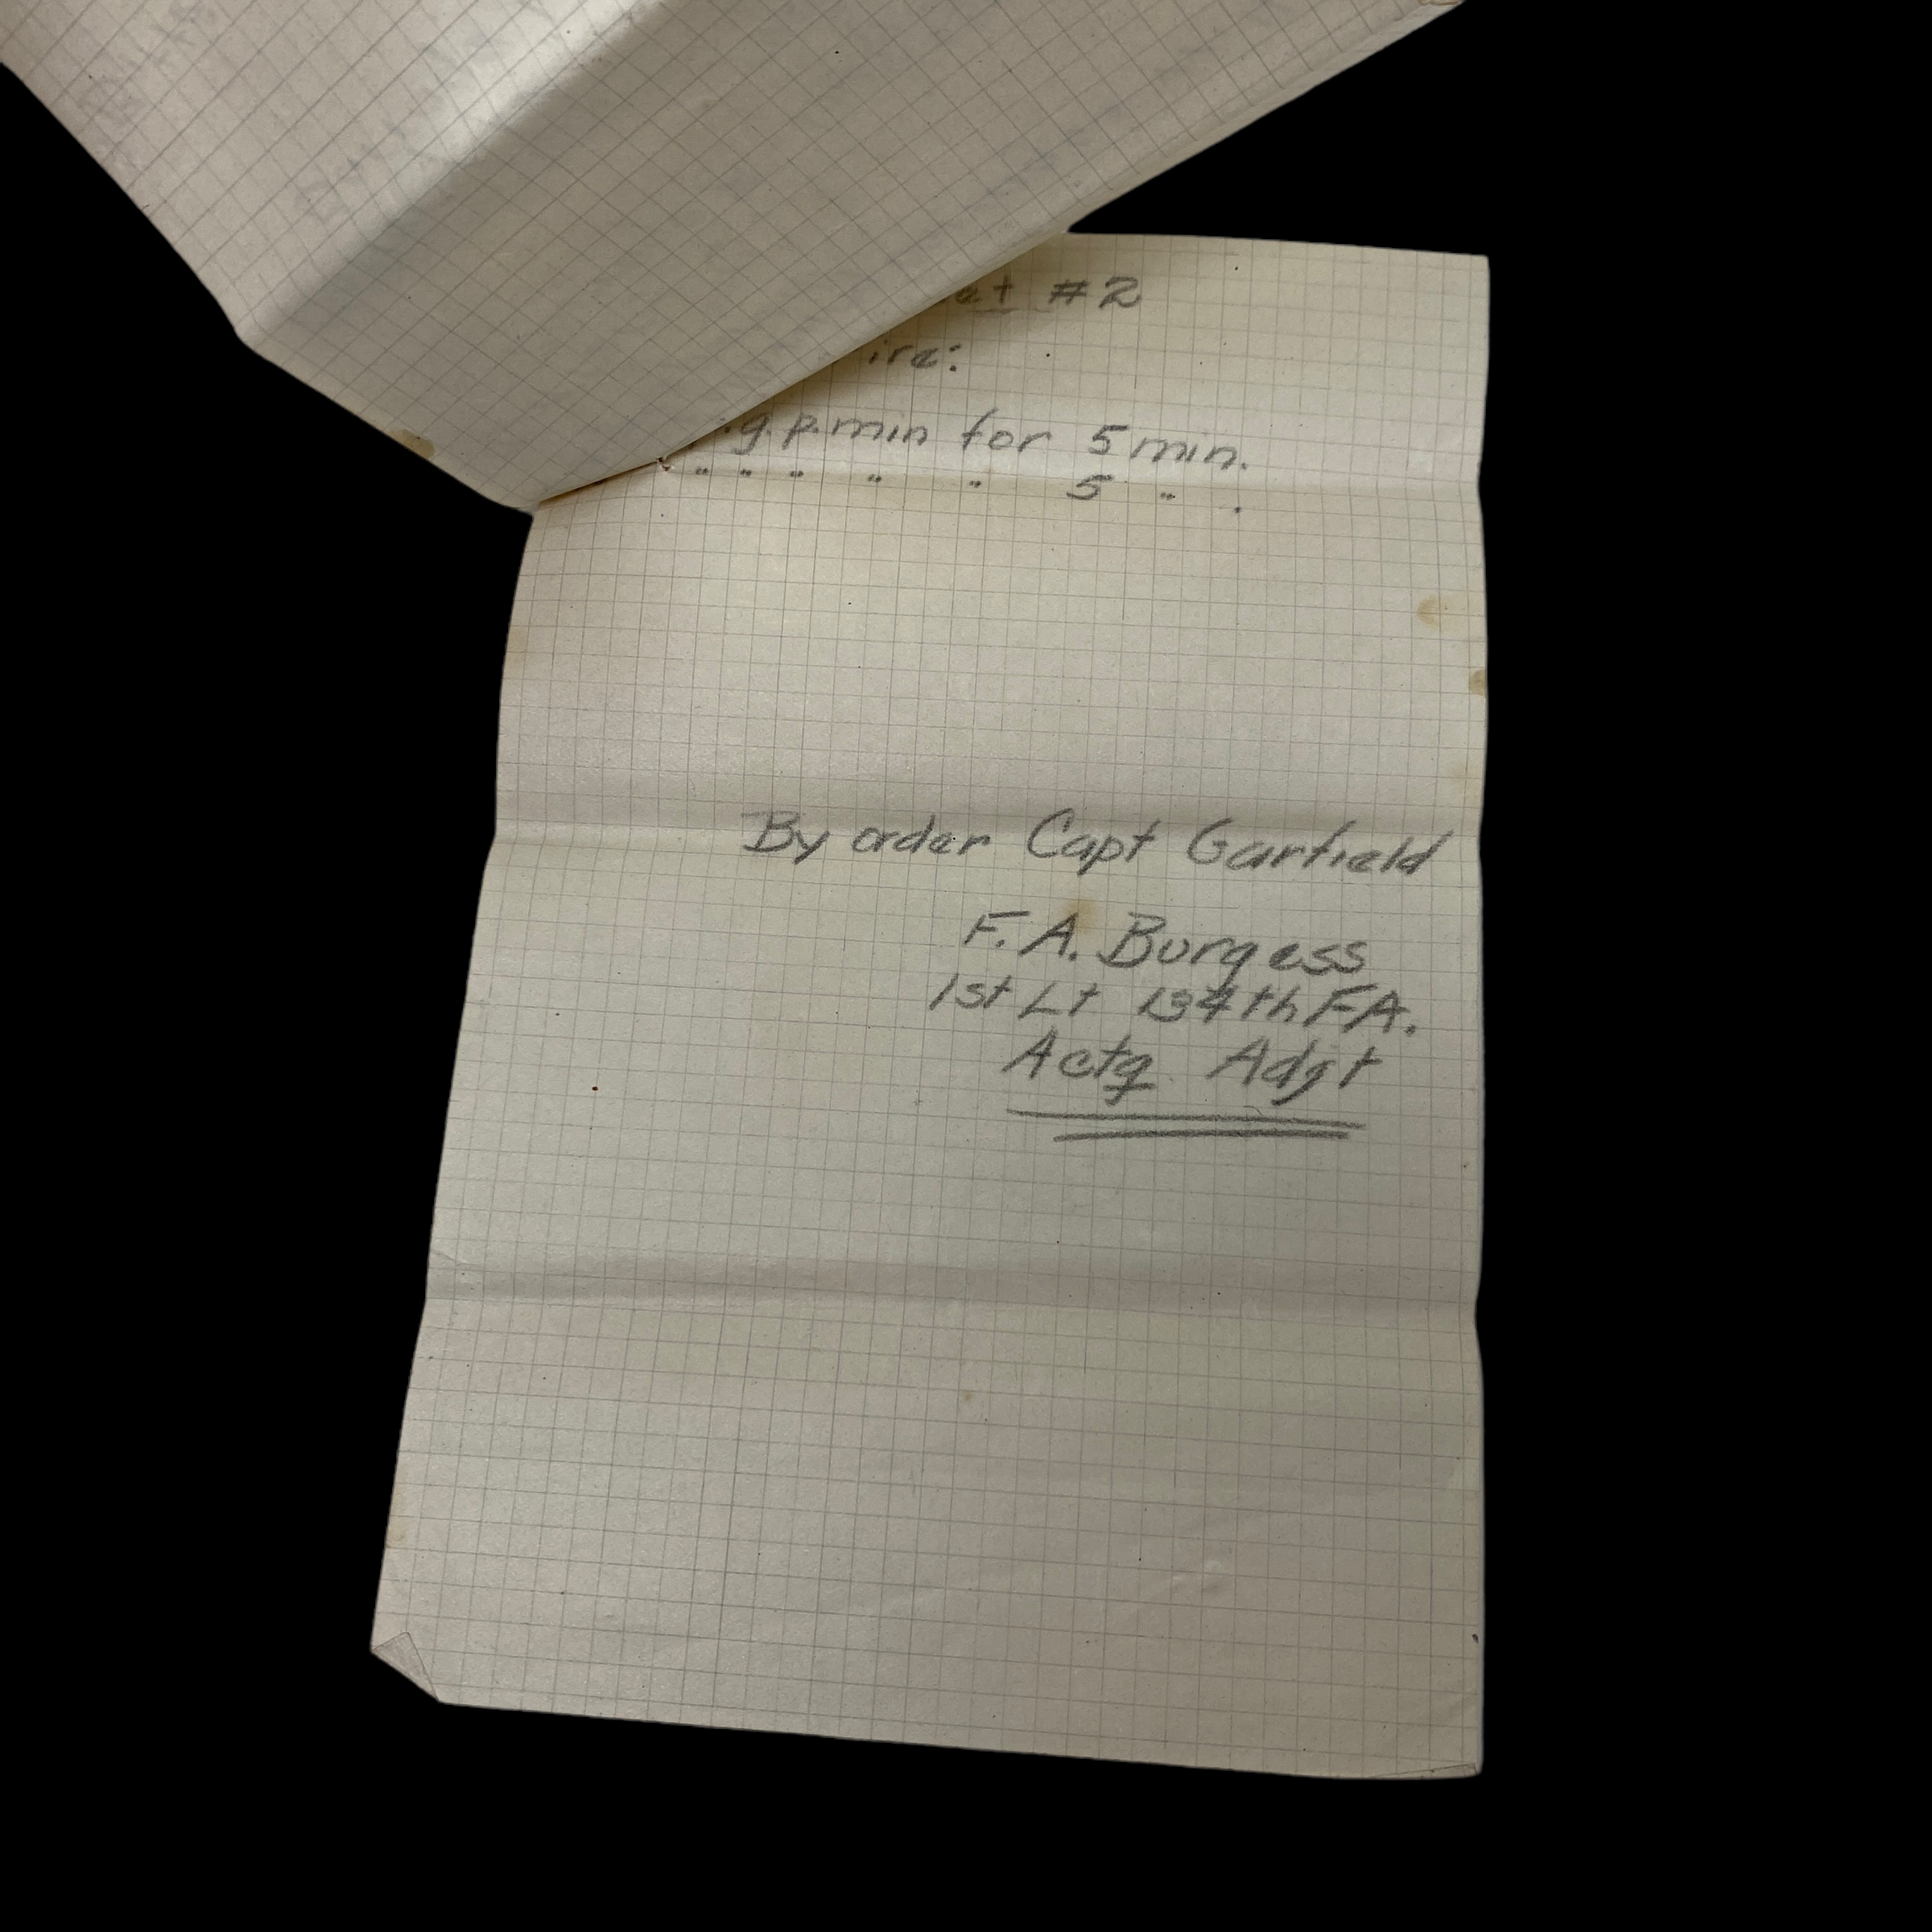 #2
p.min for 5 min.
" " " " " 5 " .
By order Capt Garfield
F. A. Burgess
1st Lt 134th F.A.
Actg Adgt